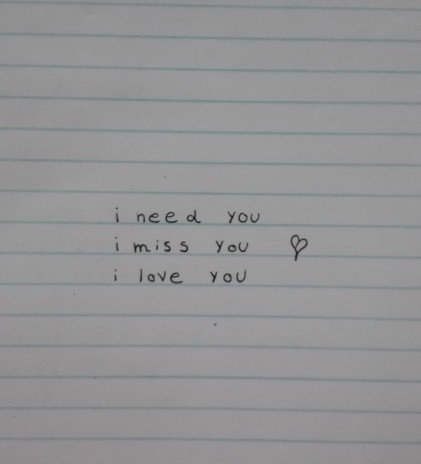 i need you
i miss you ♡
i love you